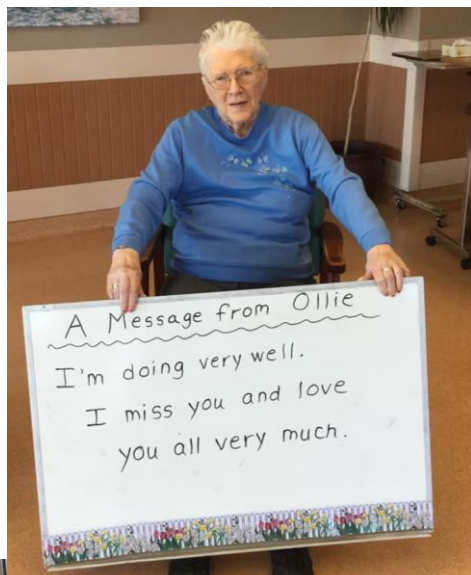 A Message from Ollie
I'm doing very well.
I miss you and love
you all very much.